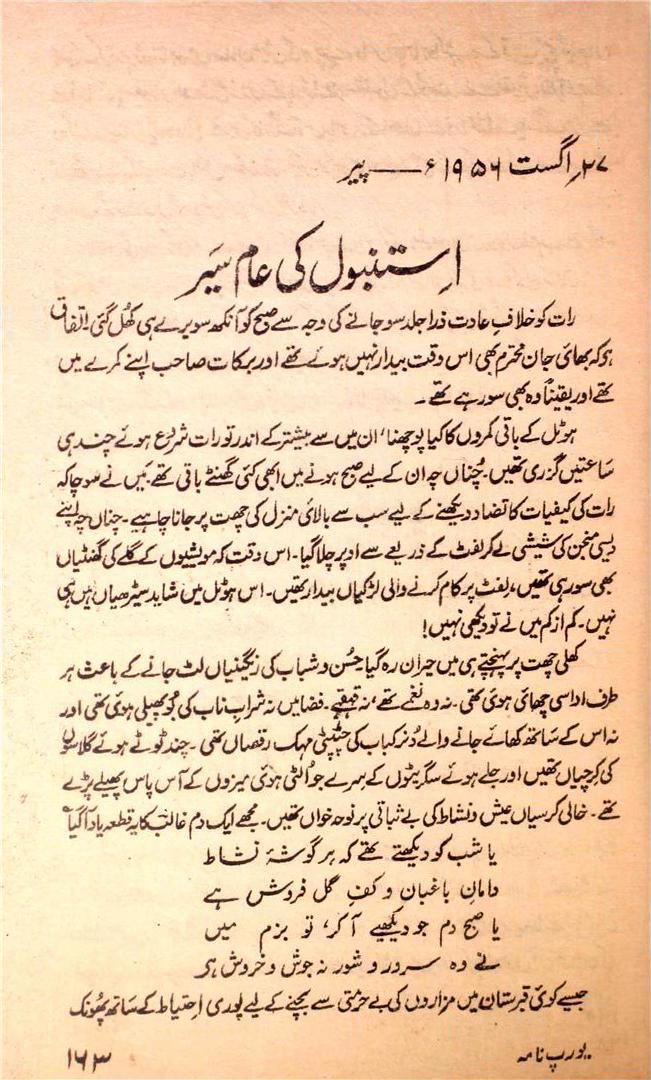 ۲۷؍ اگست ۱۹۵۶ء — پیر
اِستنبول کی عام سَیر
رات کو خلافِ عادت ذرا جلد سو جانے کی وجہ سے صبح کو آنکھ سویرے ہی کھُل گئی۔ اتفاق
ہو کہ بھائی جان محترم بھی اس وقت بیدار نہیں ہوئے تھے اور برکات صاحب اپنے کمرے میں
تھے اور یقیناً وہ بھی سو رہے تھے۔
ہوٹل کے باقی کمروں کا کیا پوچھنا، ان میں سے بیشتر کے اندر تو رات شروع ہوئے چند ہی
ساعتیں گزری تھیں۔ چُناں چہ ان کے لیے صبح ہونے میں ابھی کئی گھنٹے باقی تھے۔ میں نے سوچا کہ
رات کی کیفیات کا تضاد دیکھنے کے لیے سب سے بالائی منزل کی چھت پر جانا چاہیے۔ چناں چہ اپنے
دیسی منجن کی شیشی لے کر لفٹ کے ذریعے سے اوپر چلا گیا۔ اس وقت کہ مویشیوں کے گلے کی گھنٹیاں
بھی سو رہی تھیں، لفٹ پر کام کرنے والی لڑکیاں بیدار تھیں۔ اس ہوٹل میں شاید سیڑھیاں ہیں ہی
نہیں۔ کم از کم میں نے تو دیکھی نہیں!
کھلی چھت پر پہنچتے ہی میں حیران رہ گیا۔ حُسن و شباب کی رنگینیاں لٹ جانے کے باعث ہر
طرف اداسی چھائی ہوئی تھی۔ نہ وہ نغمے تھے، نہ قہقہے۔ فضا میں نہ شرابِ ناب کی بُو پھیلی ہوئی تھی اور
نہ اس کے ساتھ کھائے جانے والے دُنر کباب کی چٹپٹی مہک رقصاں تھی۔ چند ٹوٹے ہوئے گلاسوں
کی کرچیاں تھیں اور جلے ہوئے سگریٹوں کے سِرے جو الٹی ہوئی میزوں کے آس پاس پھیلے پڑے
تھے۔ خالی کرسیاں عیش و نشاط کی بے ثباتی پر نوحہ خواں تھیں۔ مجھے ایک دم غالب کا یہ قطعہ یاد آ گیا
یا شب کو دیکھتے تھے کہ ہر گوشۂ نشاط
دامانِ باغبان و کفِ گل فروش ہے
یا صبح دم جو دیکھیے آ کر، تو بزم میں
نے وہ سرور و شور نہ جوش و خروش ہے
جیسے کوئی قبرستان میں مزاروں کی بے حرمتی سے بچنے کے لیے پوری احتیاط کے ساتھ پھونک
یورپ نامہ
۱۶۳